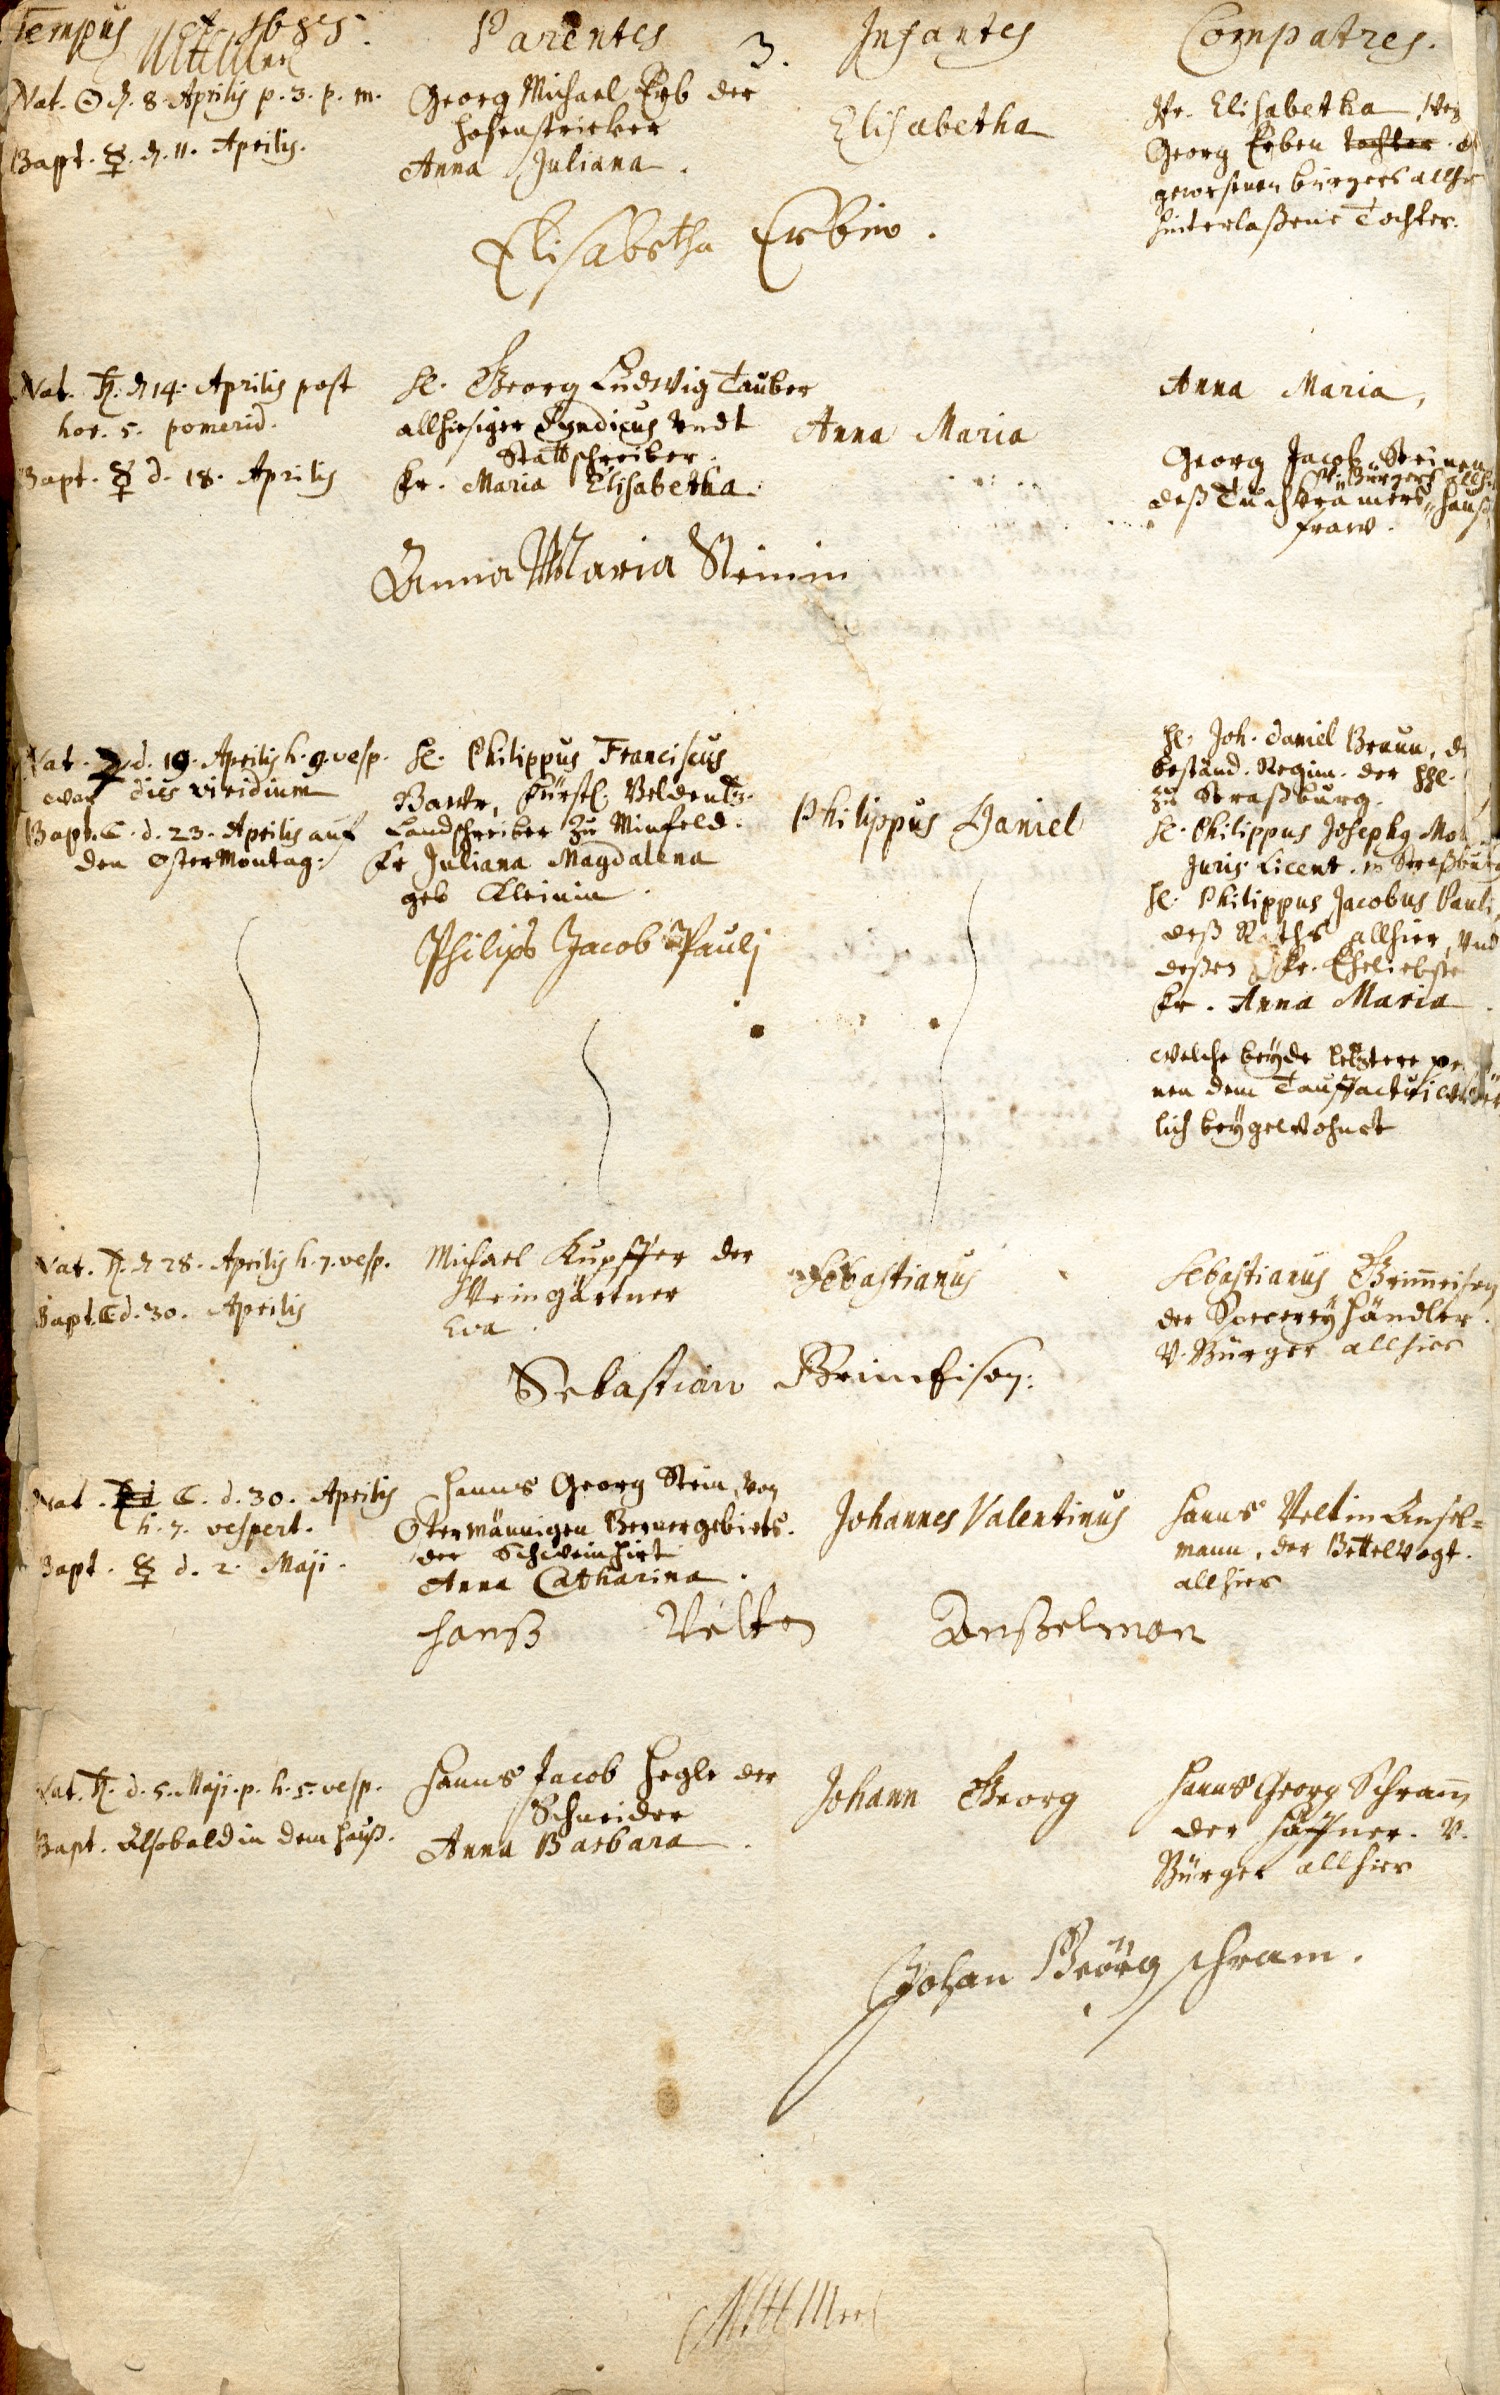 Tempus 1685.
Parentes
3.
Infantes
Compatres.
Nat. ☉ d. 8. Aprilis p. 3. p. m.
Bapt. ☿. d. 11. Aprilis.
Georg Michael Erb der
Hosenstricker
Anna Juliana.
Elisabetha
Jfr. Elisabetha,
Georg Erben tochter
geweßenen burgers allhie
hinterlaßene Tochter.
Elisabetha Erbin.
Nat. ♄. d. 14. Aprilis post
hor. 5. pomerid.
Bapt. ☿ d. 18. Aprilis
H. Georg Ludwig Tauber
allhiesiger Syndicus vndt
Stattschreiber.
Fr. Maria Elisabetha.
Anna Maria
Anna Maria,
Georg Jacob Steinen
v. Bürgers allh.
deß Tuchkrämers hauß
fraw.
Anna Maria Steinin
Nat. ♃ d. 19. Aprilis h. 9. vesp.
war dies viridium
Bapt. ☾. d. 23. Aprilis auf
den OsterMontag.
H. Philippus Franciscus
Baur, Fürstl. Veldentz.
Landschreiber zu Minfeld.
Fr Juliana Magdalena
geb Kleinin.
Philippus Daniel
H. Joh. Daniel Braun,
beständ. Regim. der
zu Straßburg.
H. Philippus Josephus
Juris Licent. in Straßburg
H. Philippus Jacobus Pauli,
deß Raths allhier, vnd
deßen Fr. Eheliebste
Fr. Anna Maria
welche beyde letztere
nen dem Tauffactui
lich beygewohnet
Philips Jacob Paulj
Nat. ♄. d. 28. Aprilis h. 7. vesp.
Bapt. ☾ d. 30. Aprilis
Michael Kupffer der
Weingärtner
Eva.
Sebastianus
Sebastianus Grimeisen
der Specerey händler.
v. Bürger allhier
Sebastian Grimeisen:
Nat. ☾. d. 30. Aprilis
h. 7. vespert.
Bapt. ☿ d. 2. Maji.
Hanns Georg Stein, von
Ostermännigen Bernergebiets.
der Schweinhirt
Anna Catharina.
Johannes Valentinus
Hanns Veltin Ansel=
mann, der Bettelvogt.
allhier
Hanß Velten Anßelman
Nat. ♄. d. 5. Maji. p. h. 5. vesp.
Bapt. Alsobald in dem hauß.
Hanns Jacob Hegle der
Schneider
Anna Barbara.
Johann Georg
Hanns Georg Schram
der Haffner. v.
Bürger allhier
Johan Geörg schram.